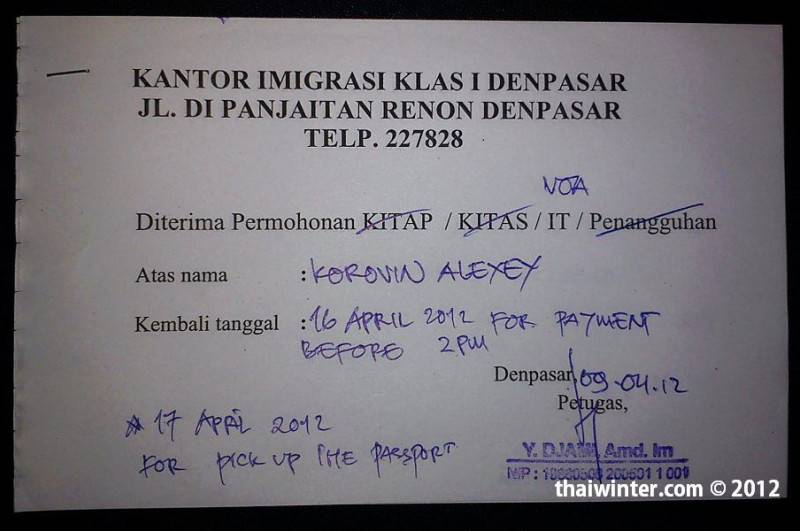 KANTOR IMIGRASI KLAS I DENPASAR
JL. DI PANJAITAN RENON DENPASAR
TELP. 227828
VOA
Diterima Permohonan KITAP / KITAS / IT / Penangguhan
Atas nama : KOROVIN ALEXEY
Kembali tanggal : 16 APRIL 2012 FOR PAYMENT
BEFORE 2PM
Denpasar, 09-04.12
Petugas,
17 APRIL 2012
FOR PICK UP THE PASSPORT
Y. DJAMI, Amd. Im
NIP :
thaiwinter.com © 2012